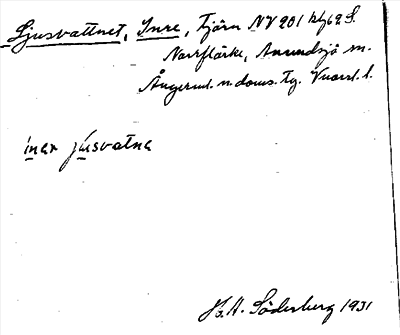 Ljusvattnet, Inre, Tjärn NV 201 kl 62 S.
Norrflärke, Anundsjö sn.
Ångerml. n. doms. Tg. l.
inar jusvatna
H. A. Söderberg 1931